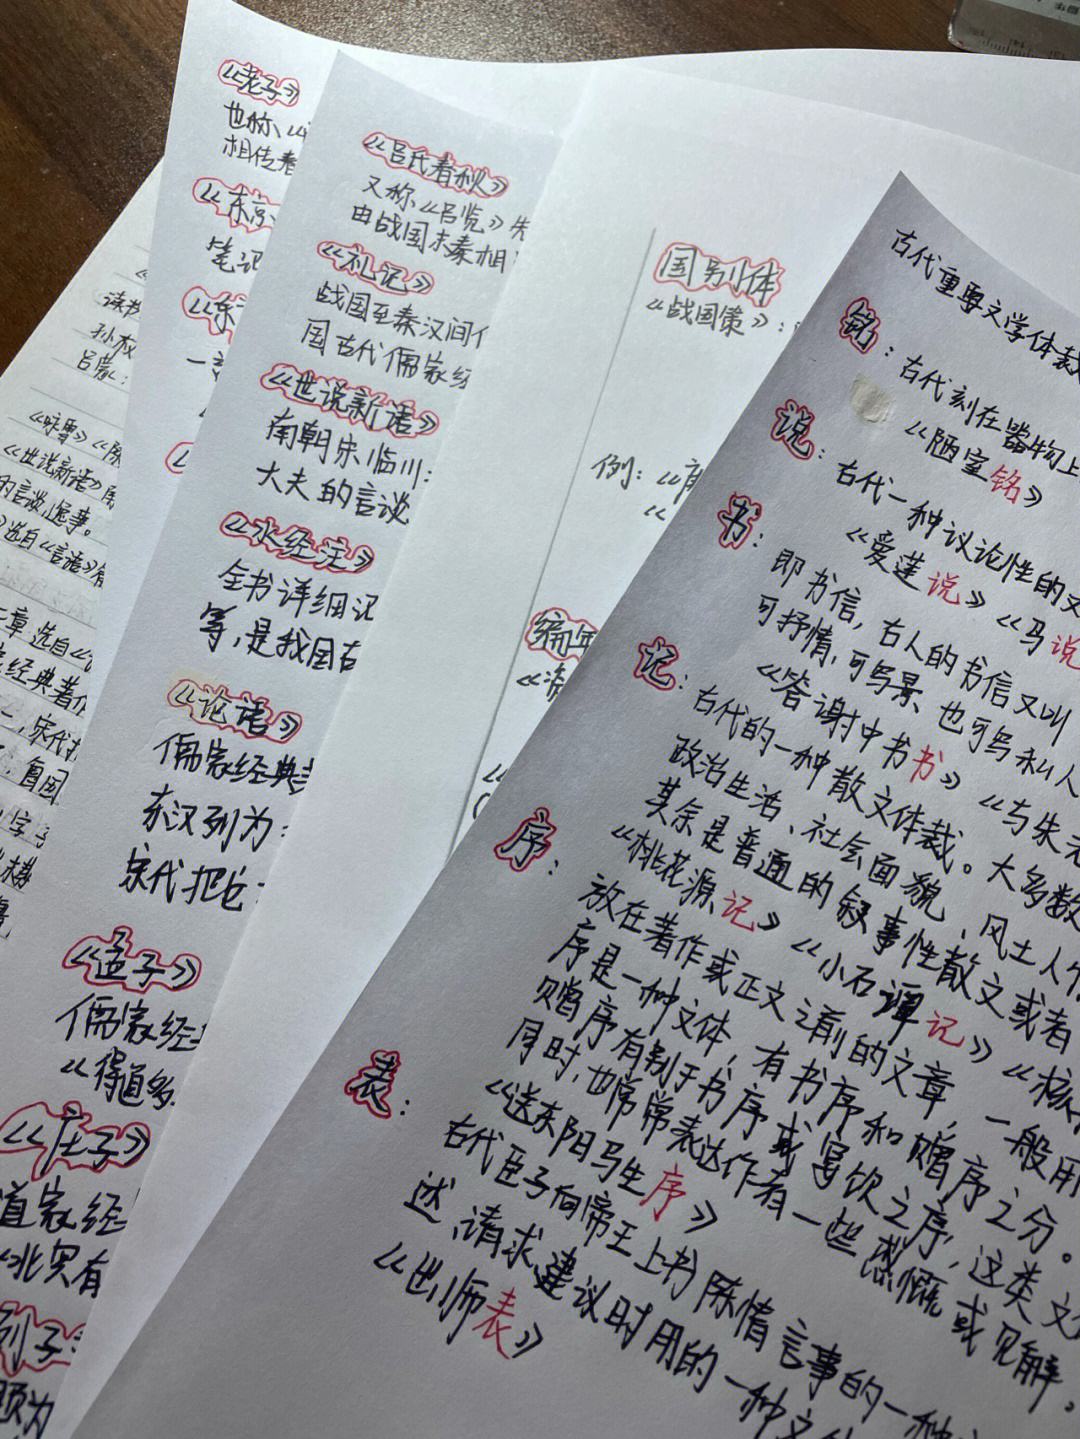 《老子》
也称《
相传春
《东京
笔记
《东
《吕氏春秋》
又称《吕览》先
由战国末秦相
《礼记》
战国至秦汉间
国古代儒家经
《世说新语》
南朝宋临川
大夫的言谈
《水经注》
全书详细记
等，是我国古
《论语》
儒家经典
东汉列为
宋代把它
《孟子》
儒家经
《得道多
《庄子》
道家经
《北冥有
列子
国别体
《战国策》：
例：《唐
编年
读
孙权
吕蒙：
《咏雪》《陈
《世说新语》
的言谈、逸事。
选自《言语》
章选自《
经典著作
，宋代
古代重要文学体裁
铭：古代刻在器物上
《陋室铭》
说：古代一种议论性的文
《爱莲说》《马说
书：即书信，古人的书信又叫
可抒情，可写景，也可写私人
《答谢中书书》《与朱元
记：古代的一种散文体裁。大多数
政治生活、社会面貌、风土人情
其余是普通的叙事性散文或者
《桃花源记》《小石谭记》《核
序：放在著作或正文之前的文章，一般用
序是一种文体，有书序和赠序之分。
赠序有别于书序或宴饮之序，这类文
同时，也常常表达作者一些感慨或见解，
《送东阳马生序》
表：古代臣子向帝王上书陈情言事的一种
述、请求、建议时用的一种文
《出师表》